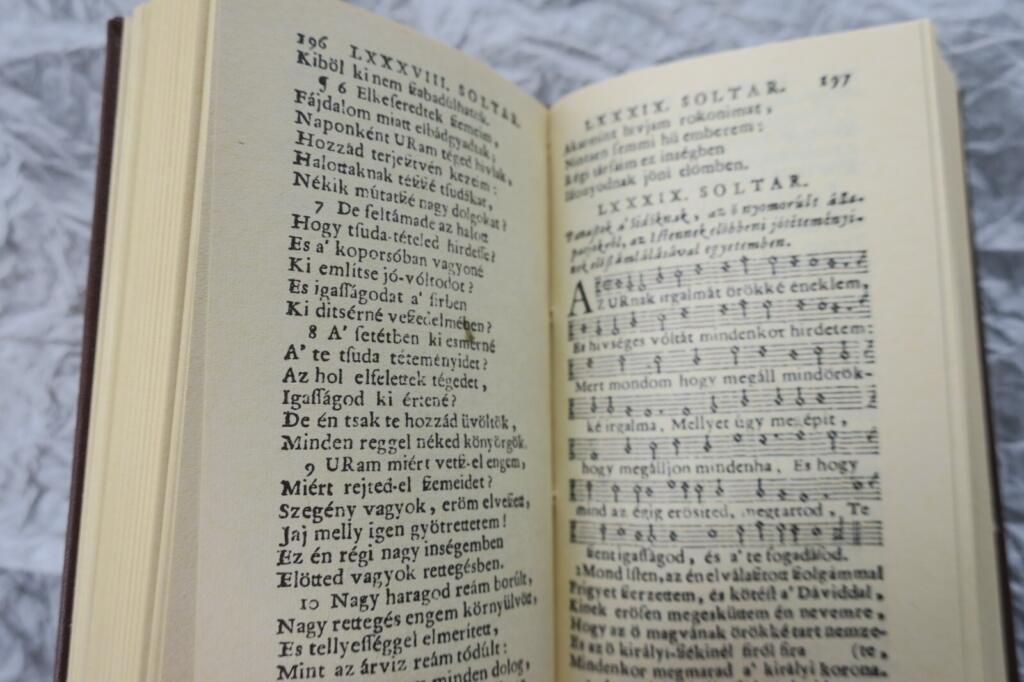 196 LXXXVIII. SOLTAR.
Kiböl ki nem ſzabadúlhatok.
¶ 6 Elkeſeredtek ſzemeim,
Fájdalom miatt elbádgyadtak,
Naponként URam téged hivlak,
Hozzád terjeſztvén kezeim:
Halottaknak tészſzé tſudákat,
Nékik mútatſzé nagy dolgokat?
7 De feltámadé az halott
Hogy tſuda-tételed hirdeſſe?
Es a' koporsóban vagyoné
Ki emlitse jó-vóltodot?
Es igaſſágodat a' ſirben
Ki ditsérné veſzedelmében?
8 A' ſetétben ki esmérné
A' te tſuda téteményidet?
Az hol elfelettek tégedet,
Igaſſágod ki értené?
De én tsak te hozzád üvöltök,
Minden reggel néked könyörgök.
9 URam miért vetſz-el engem,
Miért rejted-el ſzemeidet?
Szegény vagyok, eröm elveſzett,
Jaj melly igen gyötrettetem!
Ez én régi nagy inségemben
Elötted vagyok rettegésben.
10 Nagy haragod reám borúlt,
Nagy rettegés engem környülvött,
Es tellyeſſéggel elmerített,
Mint az árviz reám tódúlt:
minden dolog,
LXXXIX. SOLTAR. 197
Akarmint hivjam rokonimat,
Nintsen ſemmi hű emberem:
Régi társaim ez inségben
Iſzonyodnak jöni elömben.
LXXXIX. SOLTAR.
a' 'Sidóknak, az ö nyomorúlt álla-
az Iſtennek elöbbeni jótéteményi-
nek elöſzámlálásával egyetemben.
AZ URnak irgalmát örökké éneklem,
Es hivséges vóltát mindenkor hirdetem:
Mert mondom hogy megáll mindörök-
ké irgalma, Mellyet úgy megépit,
hogy megálljon mindenha, Es hogy
mind az égig erösited, megtartod, Te
ſzent igaſſágod, és a' te fogadásod.
2 Mond Iſten, az én elválaſztott ſzolgámmal
Frigyet ſzerzettem, és kötéſt a' Dáviddal,
Kinek erösen megesküttem én nevemre,
Hogy az ö magvának örökké tart nemze-
Es az ö királyi-ſzékinél firól fira (te,
Mindenkor megmarad a' királyi korona.